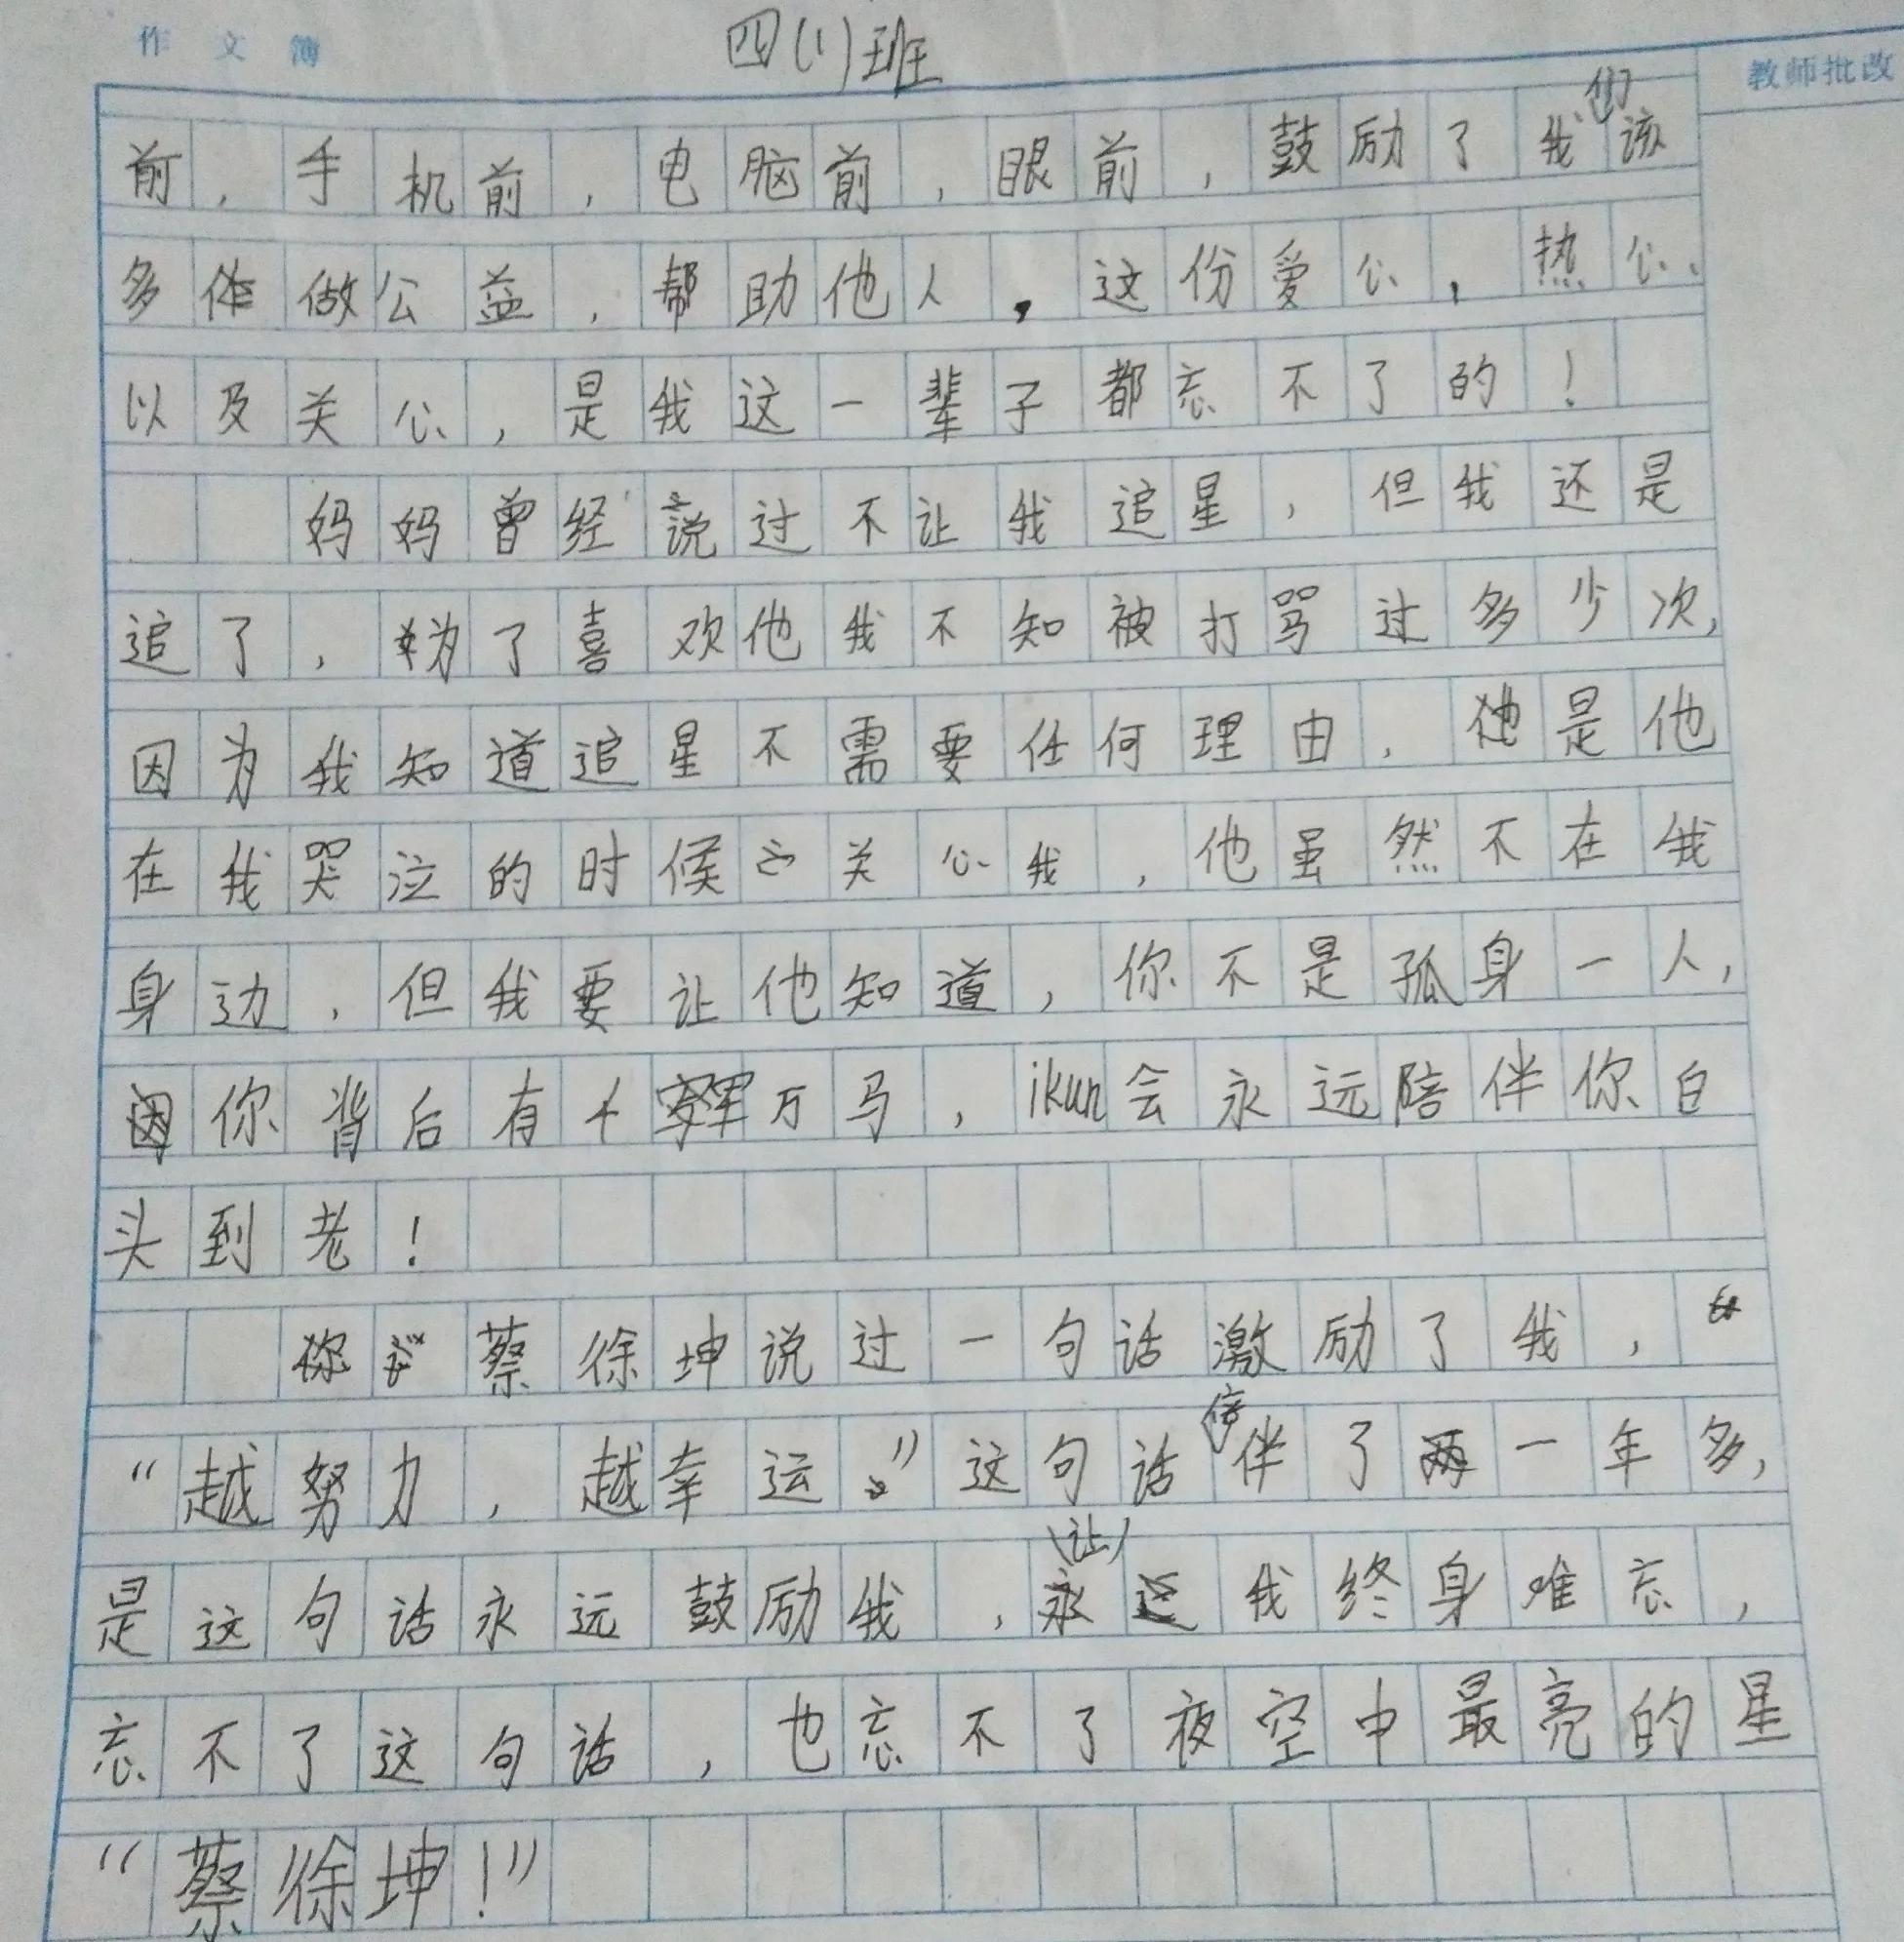 作文簿
四(1)班
教师批改
前，手机前，电脑前，眼前，鼓励了我们该
多做公益，帮助他人，这份爱心，热心、
以及关心，是我这一辈子都忘不了的！
妈妈曾经说过不让我追星，但我还是
追了，为了喜欢他我不知被打骂过多少次，
因为我知道追星不需要任何理由，他是他
在我哭泣的时候关心我，他虽然不在我
身边，但我要让他知道，你不是孤身一人，
你背后有千军万马，ikun会永远陪伴你白
头到老！
蔡徐坤说过一句话激励了我，
“越努力，越幸运。”这句话倍伴了一年多，
是这句话永远鼓励我，让我终身难忘，
忘不了这句话，也忘不了夜空中最亮的星
“蔡徐坤！”